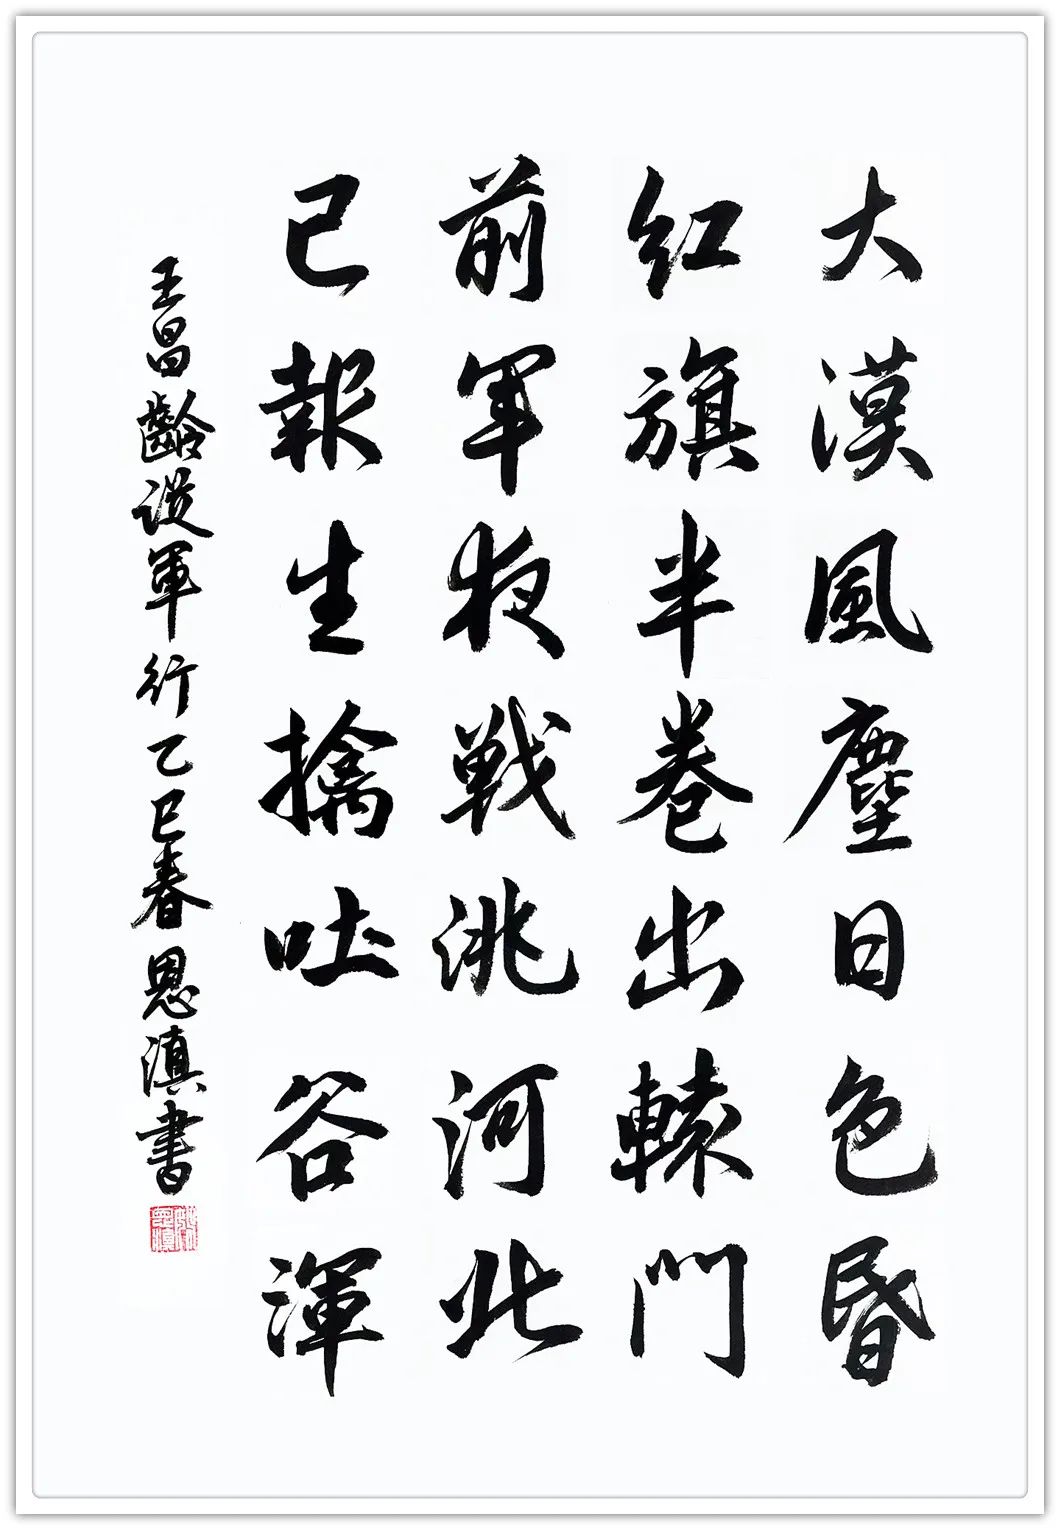 大漠風塵日色昏
红旗半卷出轅門
前軍夜戰洮河北
已報生擒吐谷渾
王昌齡從軍行乙巳春恩滇書